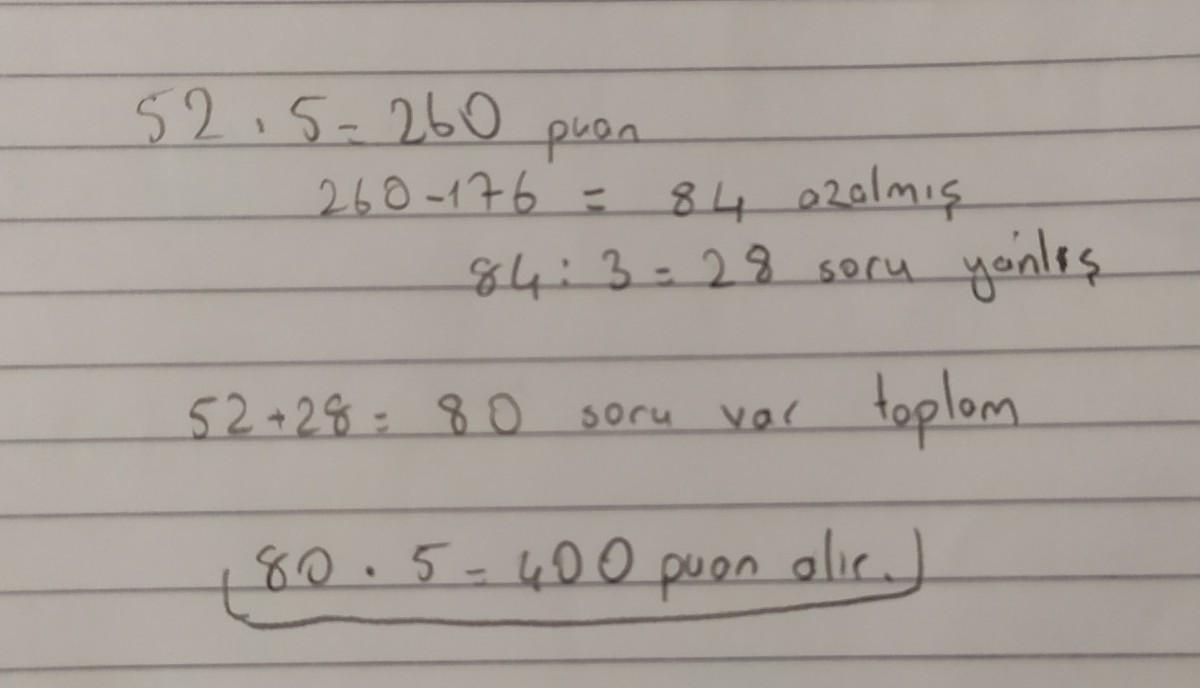 52 . 5 = 260 puan
260-176 = 84 azalmış
84 : 3 = 28 soru yanlış
52+28 = 80 soru var toplam
80 . 5 = 400 puan alır.